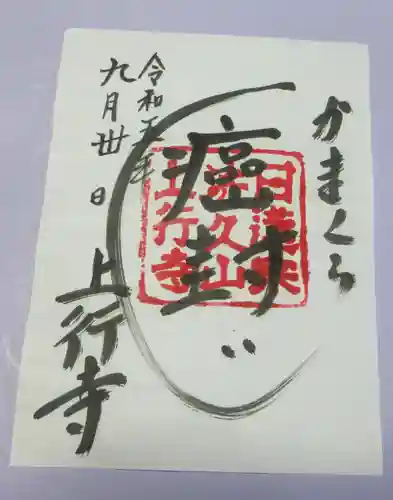 かまくら
癌封じ
上行寺
令和五年
九月卅日
日蓮宗
久山
上行寺